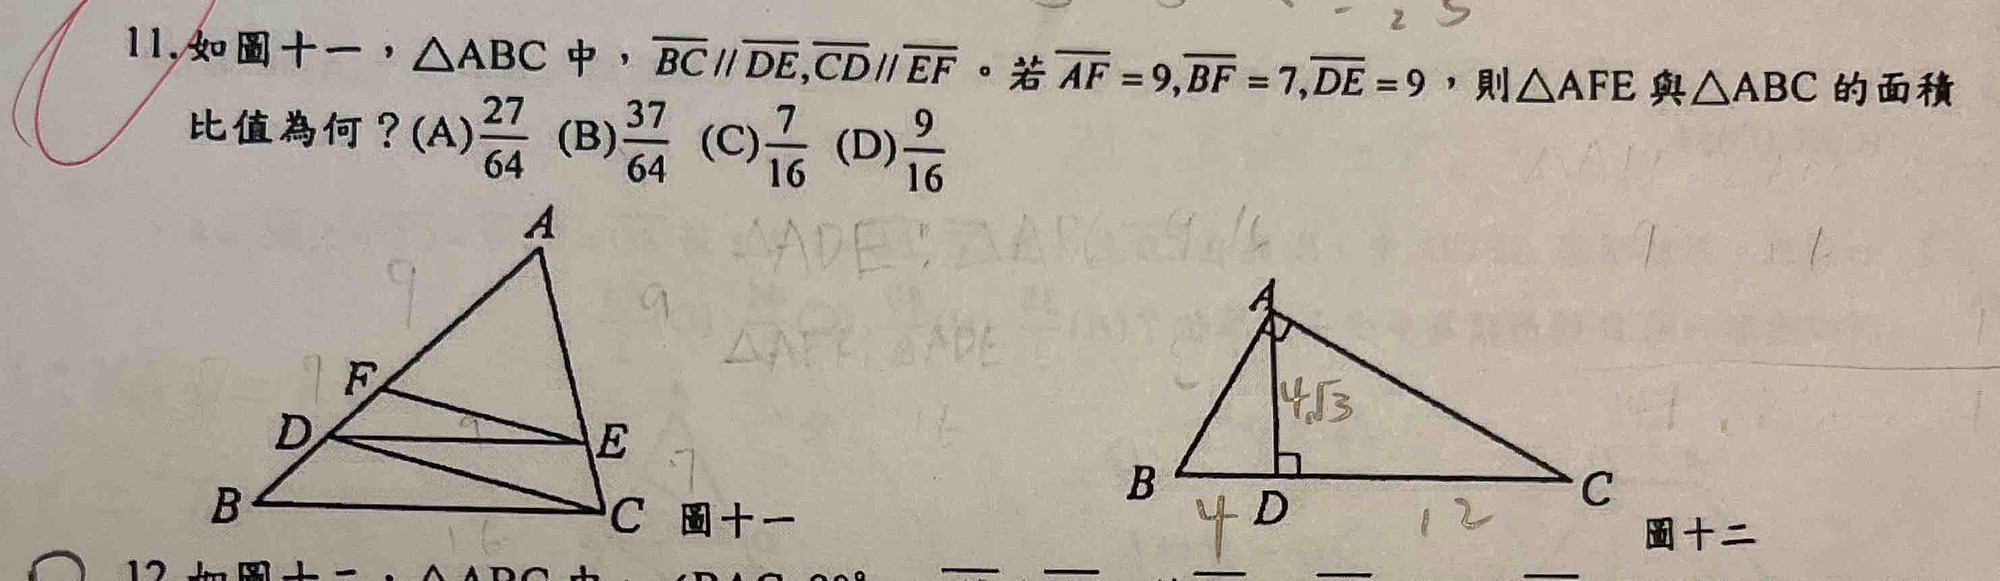 11.如圖十一，△ABC 中，BC // DE, CD // EF。若 AF = 9, BF = 7, DE = 9，則△AFE 與△ABC 的面積
比值為何？(A) 27/64 (B) 37/64 (C) 7/16 (D) 9/16
A
9
9
F
7
D
9
E
7
B
C
圖十一
16
△ADE
△AFE △ADE
A
4√3
B
D
C
4
12
圖十二
12.如圖十二，△ABC 中，